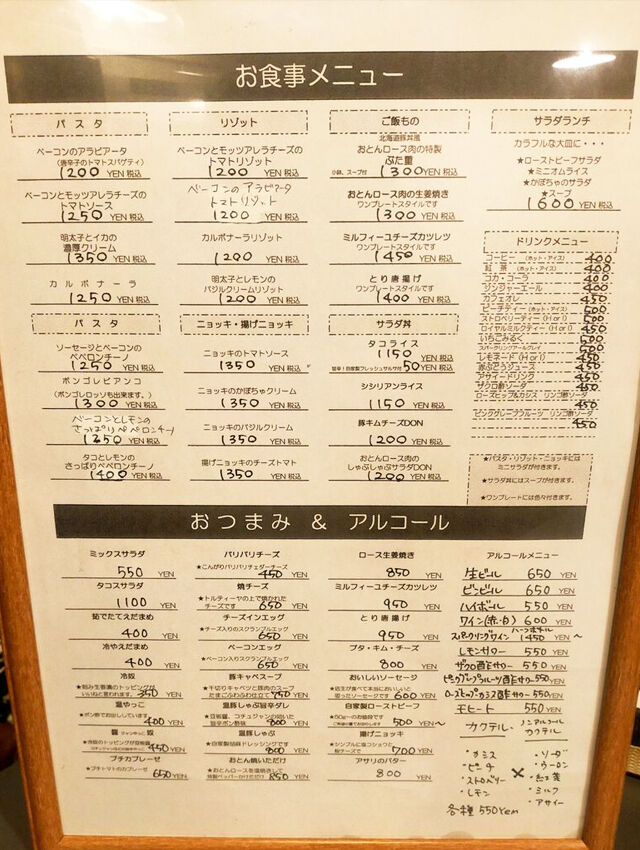 お食事メニュー
パスタ
ベーコンのアラビアータ
(唐辛子のトマトスパゲティ)
1200 YEN 税込
ベーコンとモッツアレラチーズの
トマトソース
1250 YEN 税込
明太子とイカの
濃厚クリーム
1350 YEN 税込
カルボナーラ
1250 YEN 税込
リゾット
ベーコンとモッツアレラチーズの
トマトリゾット
1200 YEN 税込
ベーコンのアラビアータ
トマトリゾット
1200 YEN 税込
カルボナーラリゾット
1200 YEN 税込
明太子とレモンの
バジルクリームリゾット
1200 YEN 税込
ご飯もの
北海道豚丼風
おとんロース肉の特製
ぶた重
小鉢、スープ付 1300 YEN 税込
おとんロース肉の生姜焼き
ワンプレートスタイルです
1300 YEN 税込
ミルフィーユチーズカツレツ
ワンプレートスタイルです
1450 YEN 税込
とり唐揚げ
ワンプレートスタイルです
1400 YEN 税込
サラダランチ
カラフルな大皿に・・・
★ローストビーフサラダ
★ミニオムライス
★かぼちゃのサラダ
★スープ
1600 YEN 税込
ドリンクメニュー
コーヒー (ホット・アイス) 400
紅茶 (ホット・アイス) 400
コカ・コーラ 400
ジンジャーエール 400
カフェオレ 450
ピーチティー (ホット・アイス) 500
ストロベリーティー (H or I) 500
ロイヤルミルクティー (H or I) 450
いちごみるく 500
スパークリングアールグレイ 500
レモネード (H or I) 450
赤ぶどうジュース 450
アサイードリンク 450
ザクロ酢ソーダ 450
ローズヒップ&カシス リンゴ酢ソーダ
450
ピンクグレープフルーツ リンゴ酢ソーダ
450
パスタ
ソーセージとベーコンの
ペペロンチーノ
1250 YEN 税込
ボンゴレビアンコ
(ボンゴレロッソも出来ます。)
1300 YEN 税込
ベーコンとレモンの
さっぱりペペロンチーノ
1350 YEN 税込
タコとレモンの
さっぱりペペロンチーノ
1400 YEN 税込
ニョッキ・揚げニョッキ
ニョッキのトマトソース
1350 YEN 税込
ニョッキのかぼちゃクリーム
1350 YEN 税込
ニョッキのバジルクリーム
1350 YEN 税込
揚げニョッキのチーズトマト
1350 YEN 税込
サラダ丼
タコライス
1150 YEN 税込
旨辛!自家製フレッシュサルサ付 50 YEN 税込
シシリアンライス
1150 YEN 税込
豚キムチーズDON
1200 YEN 税込
おとんロース肉の
しゃぶしゃぶサラダDON
1200 YEN 税込
★パスタ・リゾット・ニョッキには
ミニサラダが付きます。
★サラダ丼にはスープが付きます。
★ワンプレートには色々付きます。
おつまみ & アルコール
ミックスサラダ
550 YEN
タコスサラダ
1100 YEN
茹でたてえだまめ
400 YEN
冷やえだまめ
400 YEN
冷奴
350 YEN
温やっこ
★ポン酢でお出ししています
400 YEN
450 YEN
プチカプレーゼ
★プチトマトのカプレーゼ
650 YEN
パリパリチーズ
★こんがりパリパリチェダーチーズ
450 YEN
焼チーズ
★トルティーヤの上で焼かれた
チーズです 650 YEN
チーズインエッグ
★チーズ入りのスクランブルエッグ
650 YEN
ベーコンエッグ
★ベーコン入りスクランブルエッグ
650 YEN
豚キャベスープ
★千切りキャベツと豚肉のスープ
たまごふわふわ仕立て 750 YEN
温豚しゃぶ旨辛ダレ
★豆板醤、コチュジャンの効いた
旨辛ポン酢味 800 YEN
温豚しゃぶ
★自家製胡麻ドレッシングです
800 YEN
おとん焼いただけ
★おとんロースを塩焼きして
特製ペッパーかけただけ 850 YEN
ロース生姜焼き
850 YEN
ミルフィーユチーズカツレツ
950 YEN
とり唐揚げ
950 YEN
ブタ・キム・チーズ
800 YEN
おいしいソーセージ
★店主が食べて本当においしいと
思ったソーセージです 600 YEN
自家製ローストビーフ
500 YEN〜
揚げニョッキ
700 YEN
アサリのバター
800 YEN
アルコールメニュー
生ビール 650 YEN
ビンビール 650 YEN
ハイボール 550 YEN
ワイン(赤・白) 600 YEN
ハーフボトル
スパークリングワイン 1450 YEN〜
レモンサワー 550 YEN
ザクロ酢サワー 550 YEN
ピンクグレープフルーツ酢サワー 550 YEN
ローズヒップカシス酢サワー 550 YEN
モヒート 550 YEN
カクテル・ノンアルコール
カクテル
・カシス
・ピーチ
・ストロベリー
・レモン
×
・ソーダ
・ウーロン
・紅茶
・ミルク
・アサイー
各種 550Yen